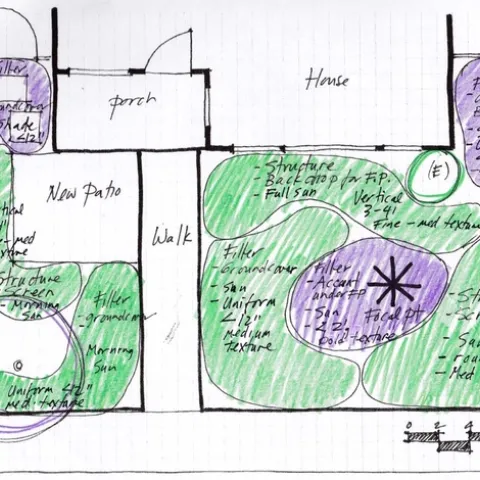 House
porch
Filler
Shade
<12"
New Patio
Walk
- Structure
- Backdrop for F.P.
- Full sun
(E)
Vertical
3-4'
Fine-med texture
Filler
- Groundcover
- Sun
- Uniform
<12"
medium
texture
Filler
- Accent
under FP
- Sun
- <2'
bold texture
Focal pt
Structure
- Screen
- Morning
Sun
Filler
- groundcover
- Morning
Sun
Uniform <12"
med. texture
- Med
0 2 4